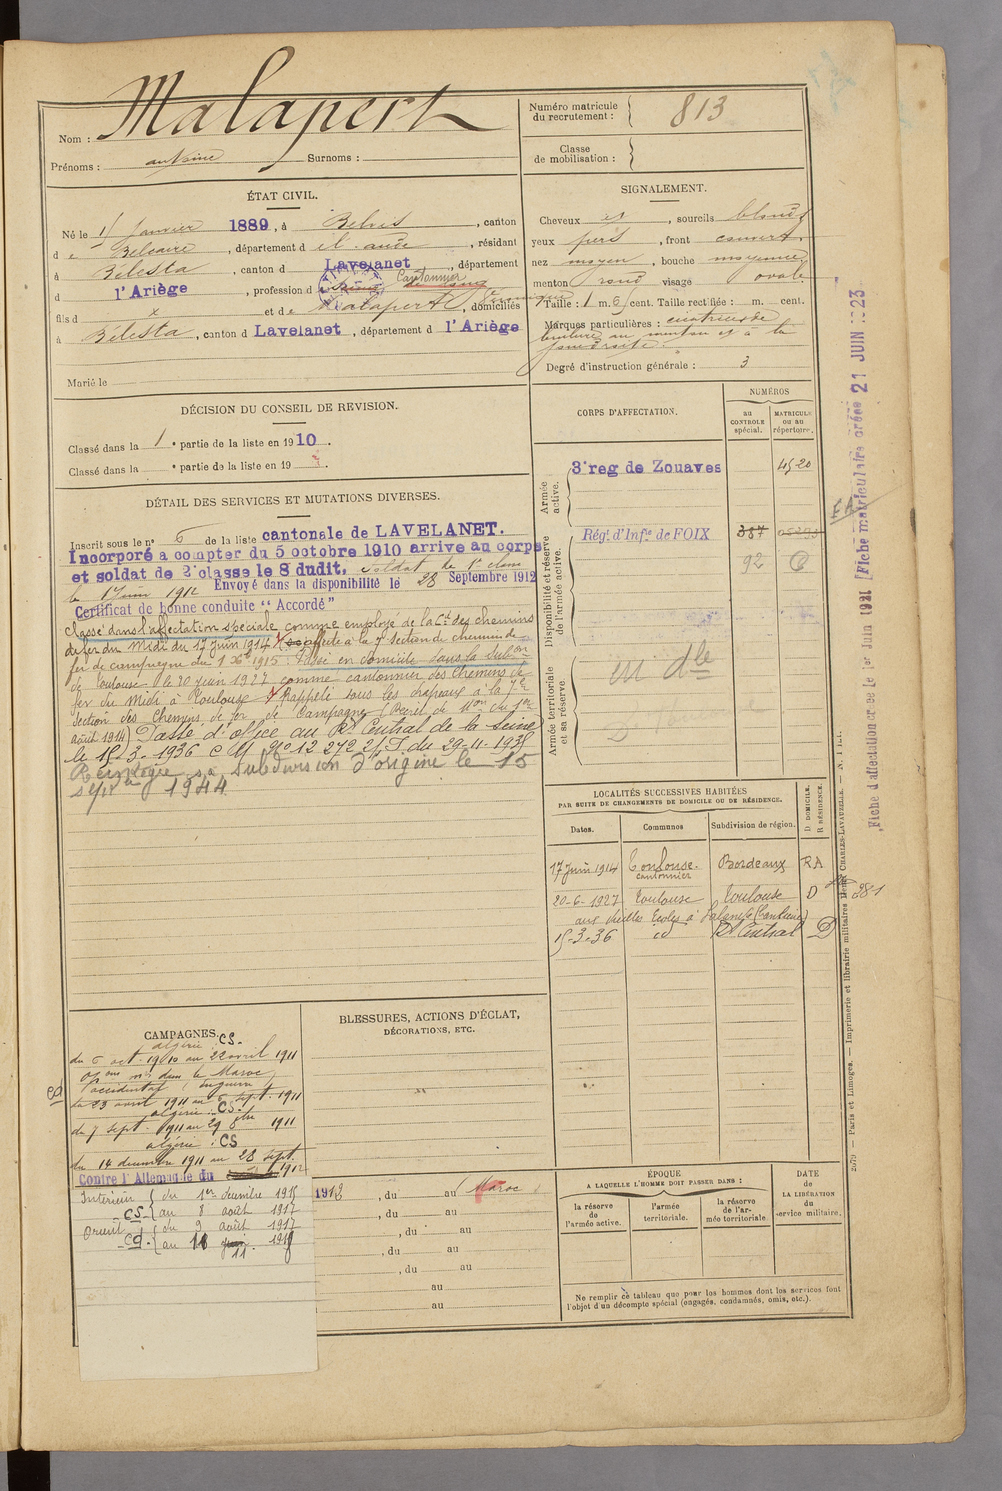 Nom : Malapert
Prénoms : antoine Surnoms :
Numéro matricule du recrutement : 813
Classe de mobilisation :
ÉTAT CIVIL.
Né le 1er Janvier 1889, à Belvis, canton
de Belcaire, département de l'aude, résidant
à Bélesta, canton d Lavelanet, département
d l'Ariège, profession d Cantonnier
fils d x et de Malapert, domiciliés
à Bélesta, canton d Lavelanet, département d l'Ariège
Marié le
SIGNALEMENT.
Cheveux et, sourcils blonds
yeux pers, front couvert
nez moyen, bouche moyenne
menton rond visage ovale
Taille : 1 m. 6 cent. Taille rectifiée : m. cent.
Marques particulières : cicatrice de
au menton et à la
joue droite.
Degré d'instruction générale : 3
DÉCISION DU CONSEIL DE REVISION.
Classé dans la 1e partie de la liste en 1910.
Classé dans la e partie de la liste en 19
DÉTAIL DES SERVICES ET MUTATIONS DIVERSES.
Inscrit sous le n° 6 de la liste cantonale de LAVELANET.
Incorporé a compter du 5 octobre 1910 arrive au corps
et soldat de 2e classe le 8 dudit. soldat de 1e classe
le 1 Juin 1912 Envoyé dans la disponibilité le 28 Septembre 1912
Certificat de bonne conduite "Accordé"
Classé dans l'affectation spéciale comme employé de la Cie des chemins
de fer du Midi du 17 juin 1914 affecté à la 7e section de chemins de
fer de campagne du 1 Xbre 1915. Passé en domicile dans la subon
de Toulouse le 20 juin 1927 comme cantonnier des chemins de
fer du Midi à Toulouse Rappelé sous les drapeaux à la 7e
Section des Chemins de fer de Campagne (Décret de Mon du 1er
août 1914) Passé d'office au Rt Central de la Seine
le 15-3-1936 C M No 12 272 2/S.T. du 29-11-1935
Réintègre sa subdivision d'origine le 15
1944
CORPS D'AFFECTATION.
NUMÉROS
au CONTROLE spécial.
MATRICULE ou au répertoire.
Armée active.
3e reg de Zouaves 4520
Disponibilité et réserve de l'armée active.
Régt. d'Infie de FOIX 387
92
Armée territoriale et sa réserve.
en dle
LOCALITÉS SUCCESSIVES HABITÉES
PAR SUITE DE CHANGEMENTS DE DOMICILE OU DE RÉSIDENCE.
Dates. Communes Subdivision de région. D DOMICILE. R RÉSIDENCE.
17 Juin 1914 Toulouse Bordeaux RA
cantonnier
20-6-1927 Toulouse Toulouse D
aux Vieilles Ecoles à
15-3-36 id Rt Central D
381
CAMPAGNES.
algérie : CS.
du 6 oct. 1910 au 22 avril 1911
Opons mres dans le Maroc
occidental
du 23 avril 1911 au 6 sept. 1911
algérie : CS.
du 7 sept. 1911 au 29 8bre 1911
algérie : CS
du 14 décembre 1911 au 28 sept. 1912
Contre l'Allemagne du
Intérieur du 1er décembre 1915
CS au 8 août 1917
Orient du 9 août 1917
au 18
BLESSURES, ACTIONS D'ÉCLAT,
DÉCORATIONS, ETC.
, du au Maroc
, du au
, du au
, du au
, du au
au
au
ÉPOQUE
A LAQUELLE L'HOMME DOIT PASSER DANS :
la réserve de l'armée active.
l'armée territoriale.
la réserve de l'armée territoriale
DATE de LA LIBÉRATION du service militaire.
Ne remplir ce tableau que pour les hommes dont les services font
l'objet d'un décompte spécial (engagés, condamnés, omis, etc.).
Paris et Limoges. — Imprimerie et librairie militaires Henri CHARLES-LAVAUZELLE.
Fiche matriculaire créée 21 JUIN 1923
Fiche d'affectation créée le 1er Juin 1921